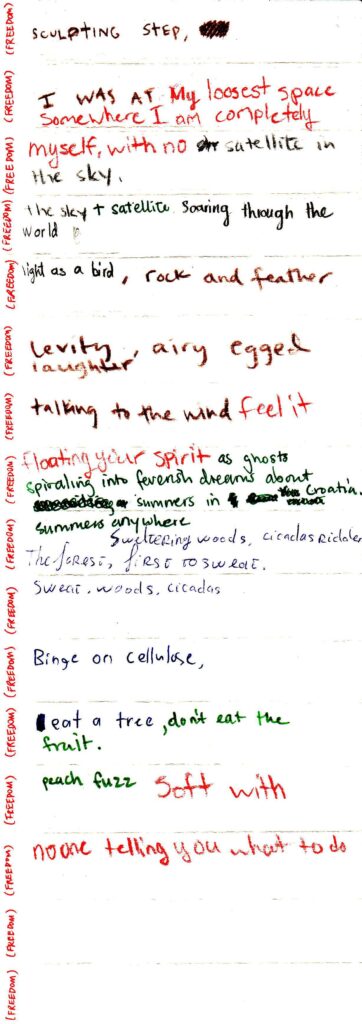 (FREEDOM)
SCULPTING STEP,
(FREEDOM)
I WAS AT My loosest space
Somewhere I am completely
(FREEDOM)
myself, with no satellite in
(FREEDOM)
the sky.
(FREEDOM)
the sky + satellite soaring through the
world
(FREEDOM)
light as a bird, rock and feather
(FREEDOM)
Levity, airy egged
laughter
(FREEDOM)
talking to the wind feel it
(FREEDOM)
floating your spirit as ghosts
spiraling into feverish dreams about
summers in Croatia.
(FREEDOM)
summers anywhere
Sweltering woods, cicadas
The forest, first to sweat.
(FREEDOM)
Sweat. woods, cicadas
(FREEDOM)
Binge on cellulose,
(FREEDOM)
eat a tree, don't eat the
fruit.
(FREEDOM)
peach fuzz Soft with
(FREEDOM)
no one telling you what to do
(FREEDOM)
(FREEDOM)